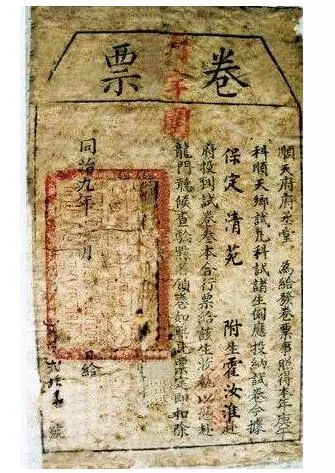 卷票
順天府府丞堂 為給發卷票事照得本年庚午
科順天鄉試凡科試諸生例應投納試卷令據
保定清苑 附生霍汝淮赴
府投到試卷叁本合行票給該生收執以憑赴
龍門聽候查驗 領卷如無此票定即扣除
同治九年 月 日給
號
字